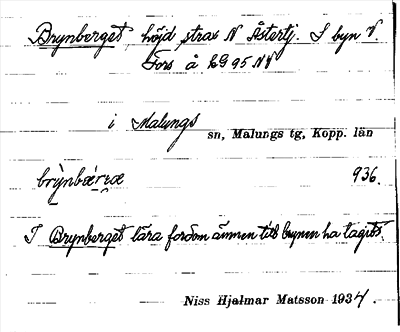 Brynberget, höjd strax N Åstertj. S byn V.
Fors å EG 95 NV
i Malungs sn, Malungs tg, Kopp. län
brỳnbæ̀r̥ɹæ 936.
I Brynberget lära fordom ämnen till brynen ha tagits.
Niss Hjalmar Matsson 1934.